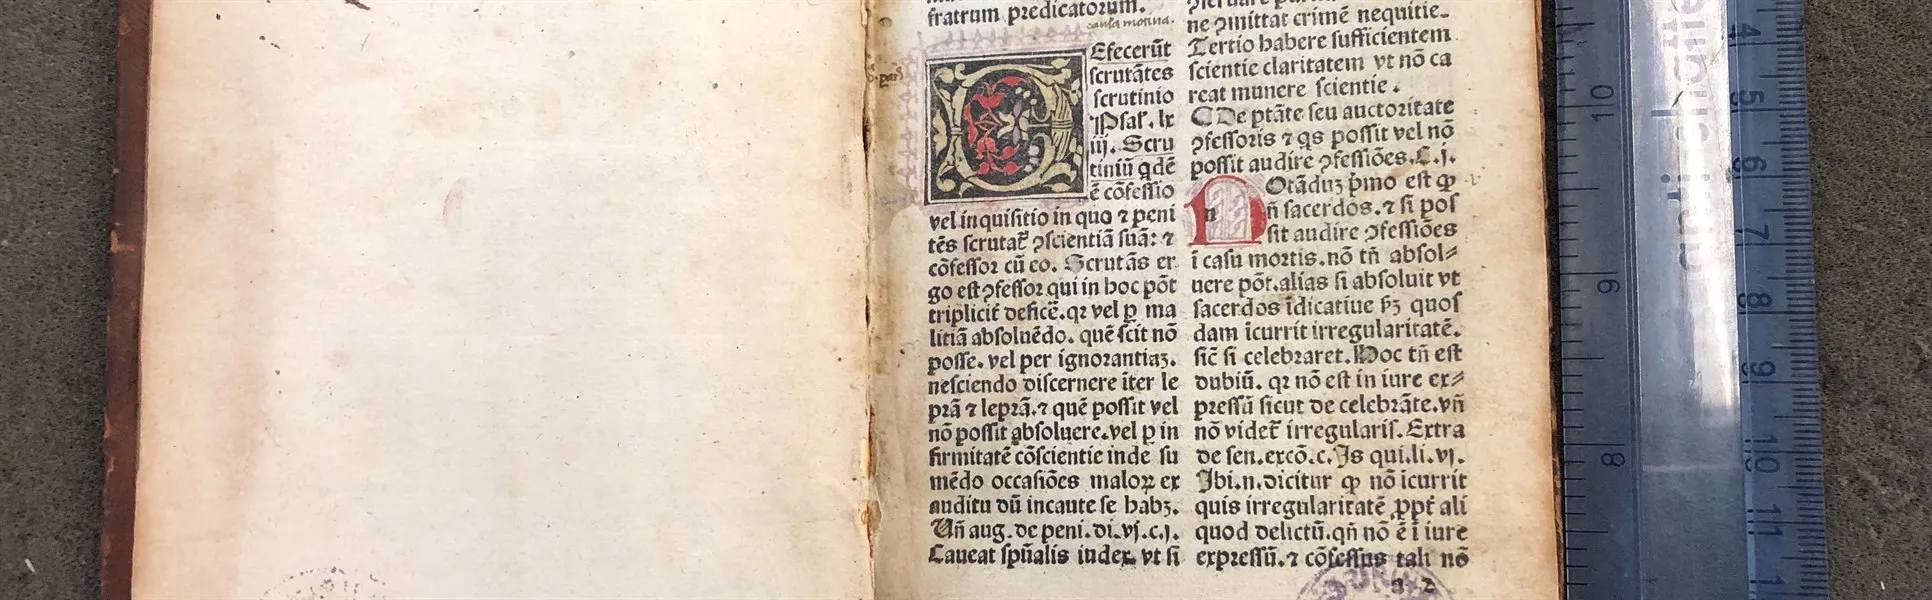 fratrum predicatorum.
causa motiua.
Efecerūt
scrutātes
scrutinio
Psaſ. lx
iij. Scru
tiniū qdē
ē cōfessio
vel inquisitio in quo ⁊ peni
tēs scrutat̄ ꝯscientiā suā: ⁊
cōfessor cū eo. Scrutās er
go est ꝯfessor qui in hoc pōt
triplicit̄ deficē. qꝛ vel ꝑ ma
litiā absoluēdo. quē scit nō
posse. vel per ignorantiaꝫ.
nesciendo discernere īter le
prā ⁊ leprā. ⁊ quē possit vel
nō possit absoluere. vel ꝑ in
firmitatē cōscientie inde su
mēdo occasiōes maloꝝ ex
auditu dū incaute se habꝫ.
Uñ aug. de peni. di. vj. c. j.
Caueat spūalis iudex. vt si
ne ꝯmittat crimē nequitie.
Tertio habere sufficientem
scientie claritatem vt nō ca
reat munere scientie.
De ptāte seu auctoritate
ꝯfessoris ⁊ qs possit vel nō
possit audire ꝯfessiōes. C. j.
Otāduꝫ pͥmo est ꝙ
n
ñ sacerdos. ⁊ si pos
sit audire ꝯfessiōes
ī casu mortis. nō tñ absol⸗
uere pōt. alias si absoluit vt
sacerdos īdicatiue ẜꝫ quos
dam īcurrit irregularitatē.
sic̄ si celebraret. Hoc tñ est
dubiū. qꝛ nō est in iure ex⸗
pressū sicut de celebrāte. vñ
nō videt̄ irregularis. Extra
de sen. excō. c. Is qui. li. vj.
Ibi. n. dicitur ꝙ nō īcurrit
quis irregularitatē ꝓpt̄ ali
quod delictū. qñ nō ē ī iure
expressū. ⁊ cōfessus tali nō
a 2
4
5
6
7
8
9
10
11
10
9
8